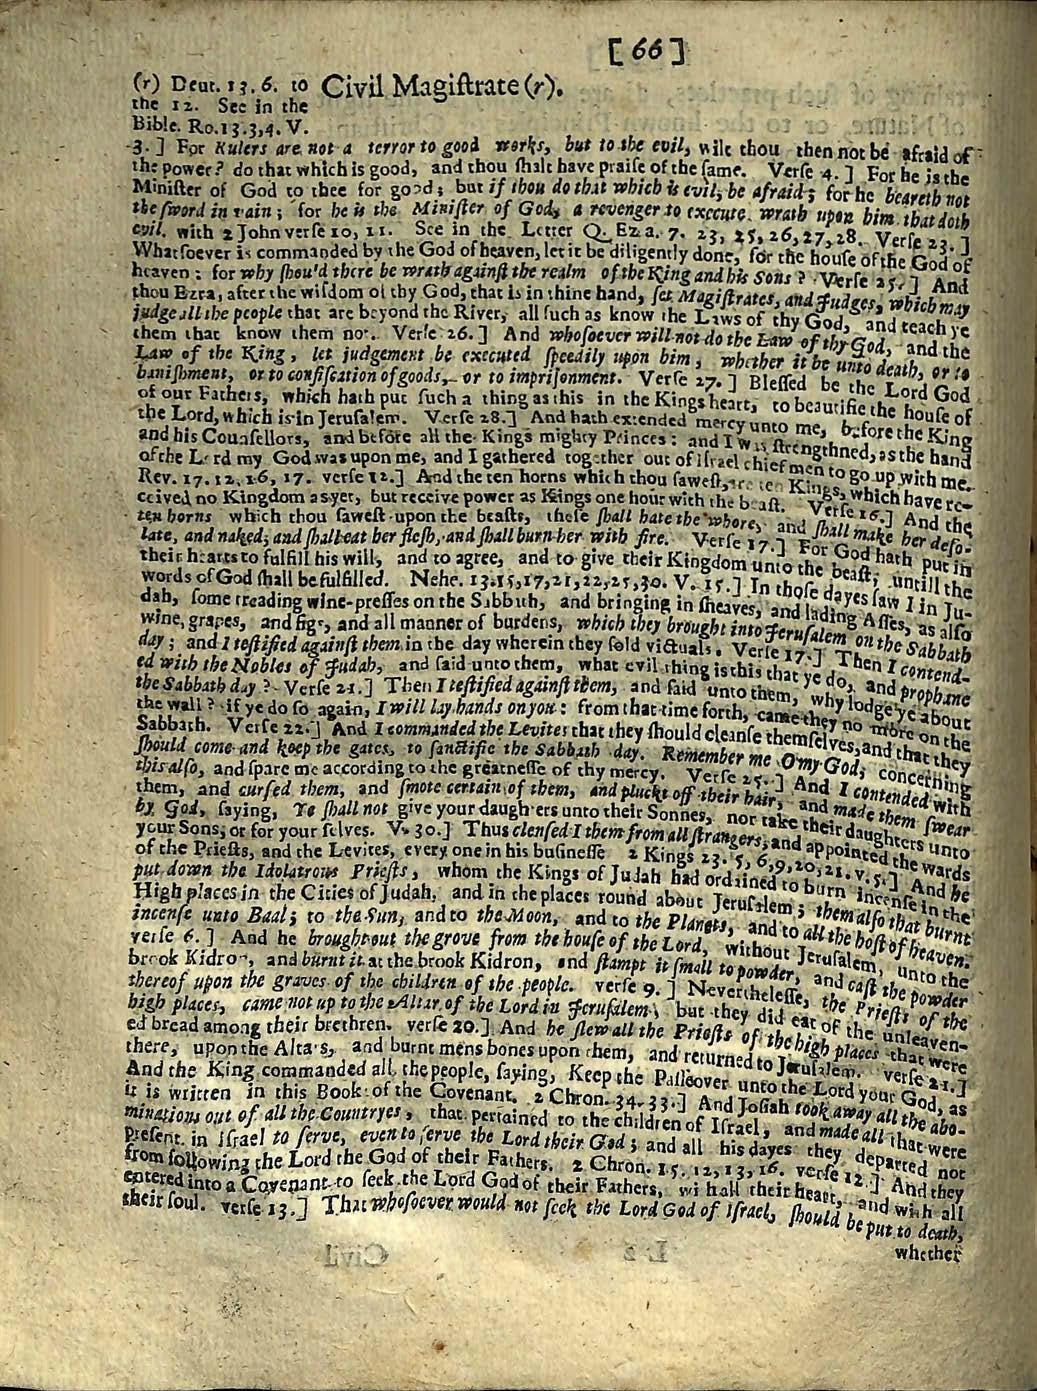 [ 66 ]
(r) Deut. 13. 6. to Civil Magiſtrate (r).
the 12. See in the
Bible. Ro. 13. 3, 4. V.
3. ] For Rulers are not a terror to good works, but to the evil, wilt thou then not be afraid of
the power? do that which is good, and thou ſhalt have praiſe of the ſame. Verſe 4. ] For he is the
Miniſter of God to thee for good; but if thou do that which is evil, be afraid; for he beareth not
the ſword in vain; for he is the Miniſter of God, a revenger to execute wrath upon him that doth
evil. with 2 John verſe 10, 11. See in the Letter Q. Ezra. 7. 23, 25, 26, 27, 28. Verſe 23. ]
Whatſoever is commanded by the God of heaven, let it be diligently done, for the houſe of the God of
heaven: for why ſhou'd there be wrath againſt the realm of the King and his Sons? Verſe 25. ] And
thou Ezra, after the wiſdom of thy God, that is in thine hand, ſet Magiſtrates, and Judges, which may
judge all the people that are beyond the River, all ſuch as know the Laws of thy God, and teach ye
them that know them not. Verſe 26. ] And whoſoever will not do the Law of thy God, and the
Law of the King, let judgement be executed ſpeedily upon him, whether it be unto death, or to
baniſhment, or to confiſcation of goods, or to impriſonment. Verſe 27. ] Bleſſed be the Lord God
of our Fathers, which hath put ſuch a thing as this in the Kings heart, to beautifie the houſe of
the Lord, which is in Jeruſalem. Verſe 28. ] And hath extended mercy unto me, before the King
and his Counſellors, and before all the Kings mighty Princes: and I was ſtrengthned, as the hand
of the Lord my God was upon me, and I gathered together out of iſrael chief men to go up with me.
Rev. 17. 12, 16, 17. verſe 12. ] And the ten horns which thou ſaweſt, are ten Kings, which have re-
ceived no Kingdom as yet, but receive power as Kings one hour with the beaſt. Verſe 16. ] And the
ten horns which thou ſaweſt upon the beaſts, theſe ſhall hate the whore, and ſhall make her deſo-
late, and naked; and ſhall eat her fleſh, and ſhall burn her with fire. Verſe 17. ] For God hath put in
their hearts to fulfill his will, and to agree, and to give their Kingdom unto the beaſt, untill the
words of God ſhall be fulfilled. Nehe. 13. 15, 17, 21, 22, 25, 30. V. 15. ] In thoſe dayes ſaw I in Ju-
dah, ſome treading wine-preſſes on the Sabbath, and bringing in ſheaves, and lading Aſſes, as alſo
wine, grapes, and figs, and all manner of burdens, which they brought into Jeruſalem on the Sabbath
day; and I teſtified againſt them in the day wherein they ſold victuals. Verſe 17. ] Then I contend-
ed with the Nobles of Judah, and ſaid unto them, what evil thing is this that ye do, and prophane
the Sabbath day? Verſe 21. ] Then I teſtified againſt them, and ſaid unto them, why lodge ye about
the wall? if ye do ſo again, I will lay hands on you: from that time forth, came they no more on the
Sabbath. Verſe 22. ] And I commanded the Levites that they ſhould cleanſe themſelves, and that they
ſhould come and keep the gates, to ſanctifie the Sabbath day. Remember me O my God, concerning
this alſo, and ſpare me according to the greatneſſe of thy mercy. Verſe 25. ] And I contended with
them, and curſed them, and ſmote certain of them, and pluckt off their hair, and made them ſwear
by God, ſaying, Ye ſhall not give your daughters unto their Sonnes, nor take their daughters unto
your Sons, or for your ſelves. V. 30. ] Thus clenſed I them from all ſtrangers, and appointed the wards
of the Prieſts, and the Levites, every one in his buſineſſe 2 Kings 23. 5, 6, 9, 20, 21. v. 5. ] And he
put down the Idolatrous Prieſts, whom the Kings of Judah had ordained to burn incenſe in the
High places in the Cities of Judah, and in the places round about Jeruſalem; them alſo that burnt
incenſe unto Baal; to the Sun, and to the Moon, and to the Planets, and to all the hoſt of heaven.
verſe 6. ] And he brought out the grove from the houſe of the Lord, without Jeruſalem, unto the
brook Kidron, and burnt it at the brook Kidron, and ſtampt it ſmall to powder, and caſt the powder
thereof upon the graves of the children of the people. verſe 9. ] Nevertheleſſe, the Prieſts of the
high places, came not up to the Altar of the Lord in Jeruſalem, but they did eat of the unleaven-
ed bread among their brethren. verſe 20. ] And he ſlew all the Prieſts of the high places that were
there, upon the Altars, and burnt mens bones upon them, and returned to Jeruſalem. verſe 21. ]
And the King commanded all the people, ſaying, Keep the Paſſeover unto the Lord your God, as
it is written in this Book of the Covenant. 2 Chron. 34. 33. ] And Joſiah took away all the abo-
minations out of all the Countryes, that pertained to the children of Iſrael, and made all that were
preſent in iſrael to ſerve, even to ſerve the Lord their God; and all his dayes they departed not
from following the Lord the God of their Fathers. 2 Chron. 15. 12, 13, 16. verſe 12. ] And they
entered into a Covenant to ſeek the Lord God of their Fathers, with all their heart, and with all
their ſoul. verſe 13. ] That whoſoever would not ſeek the Lord God of Iſrael, ſhould be put to death,
whether